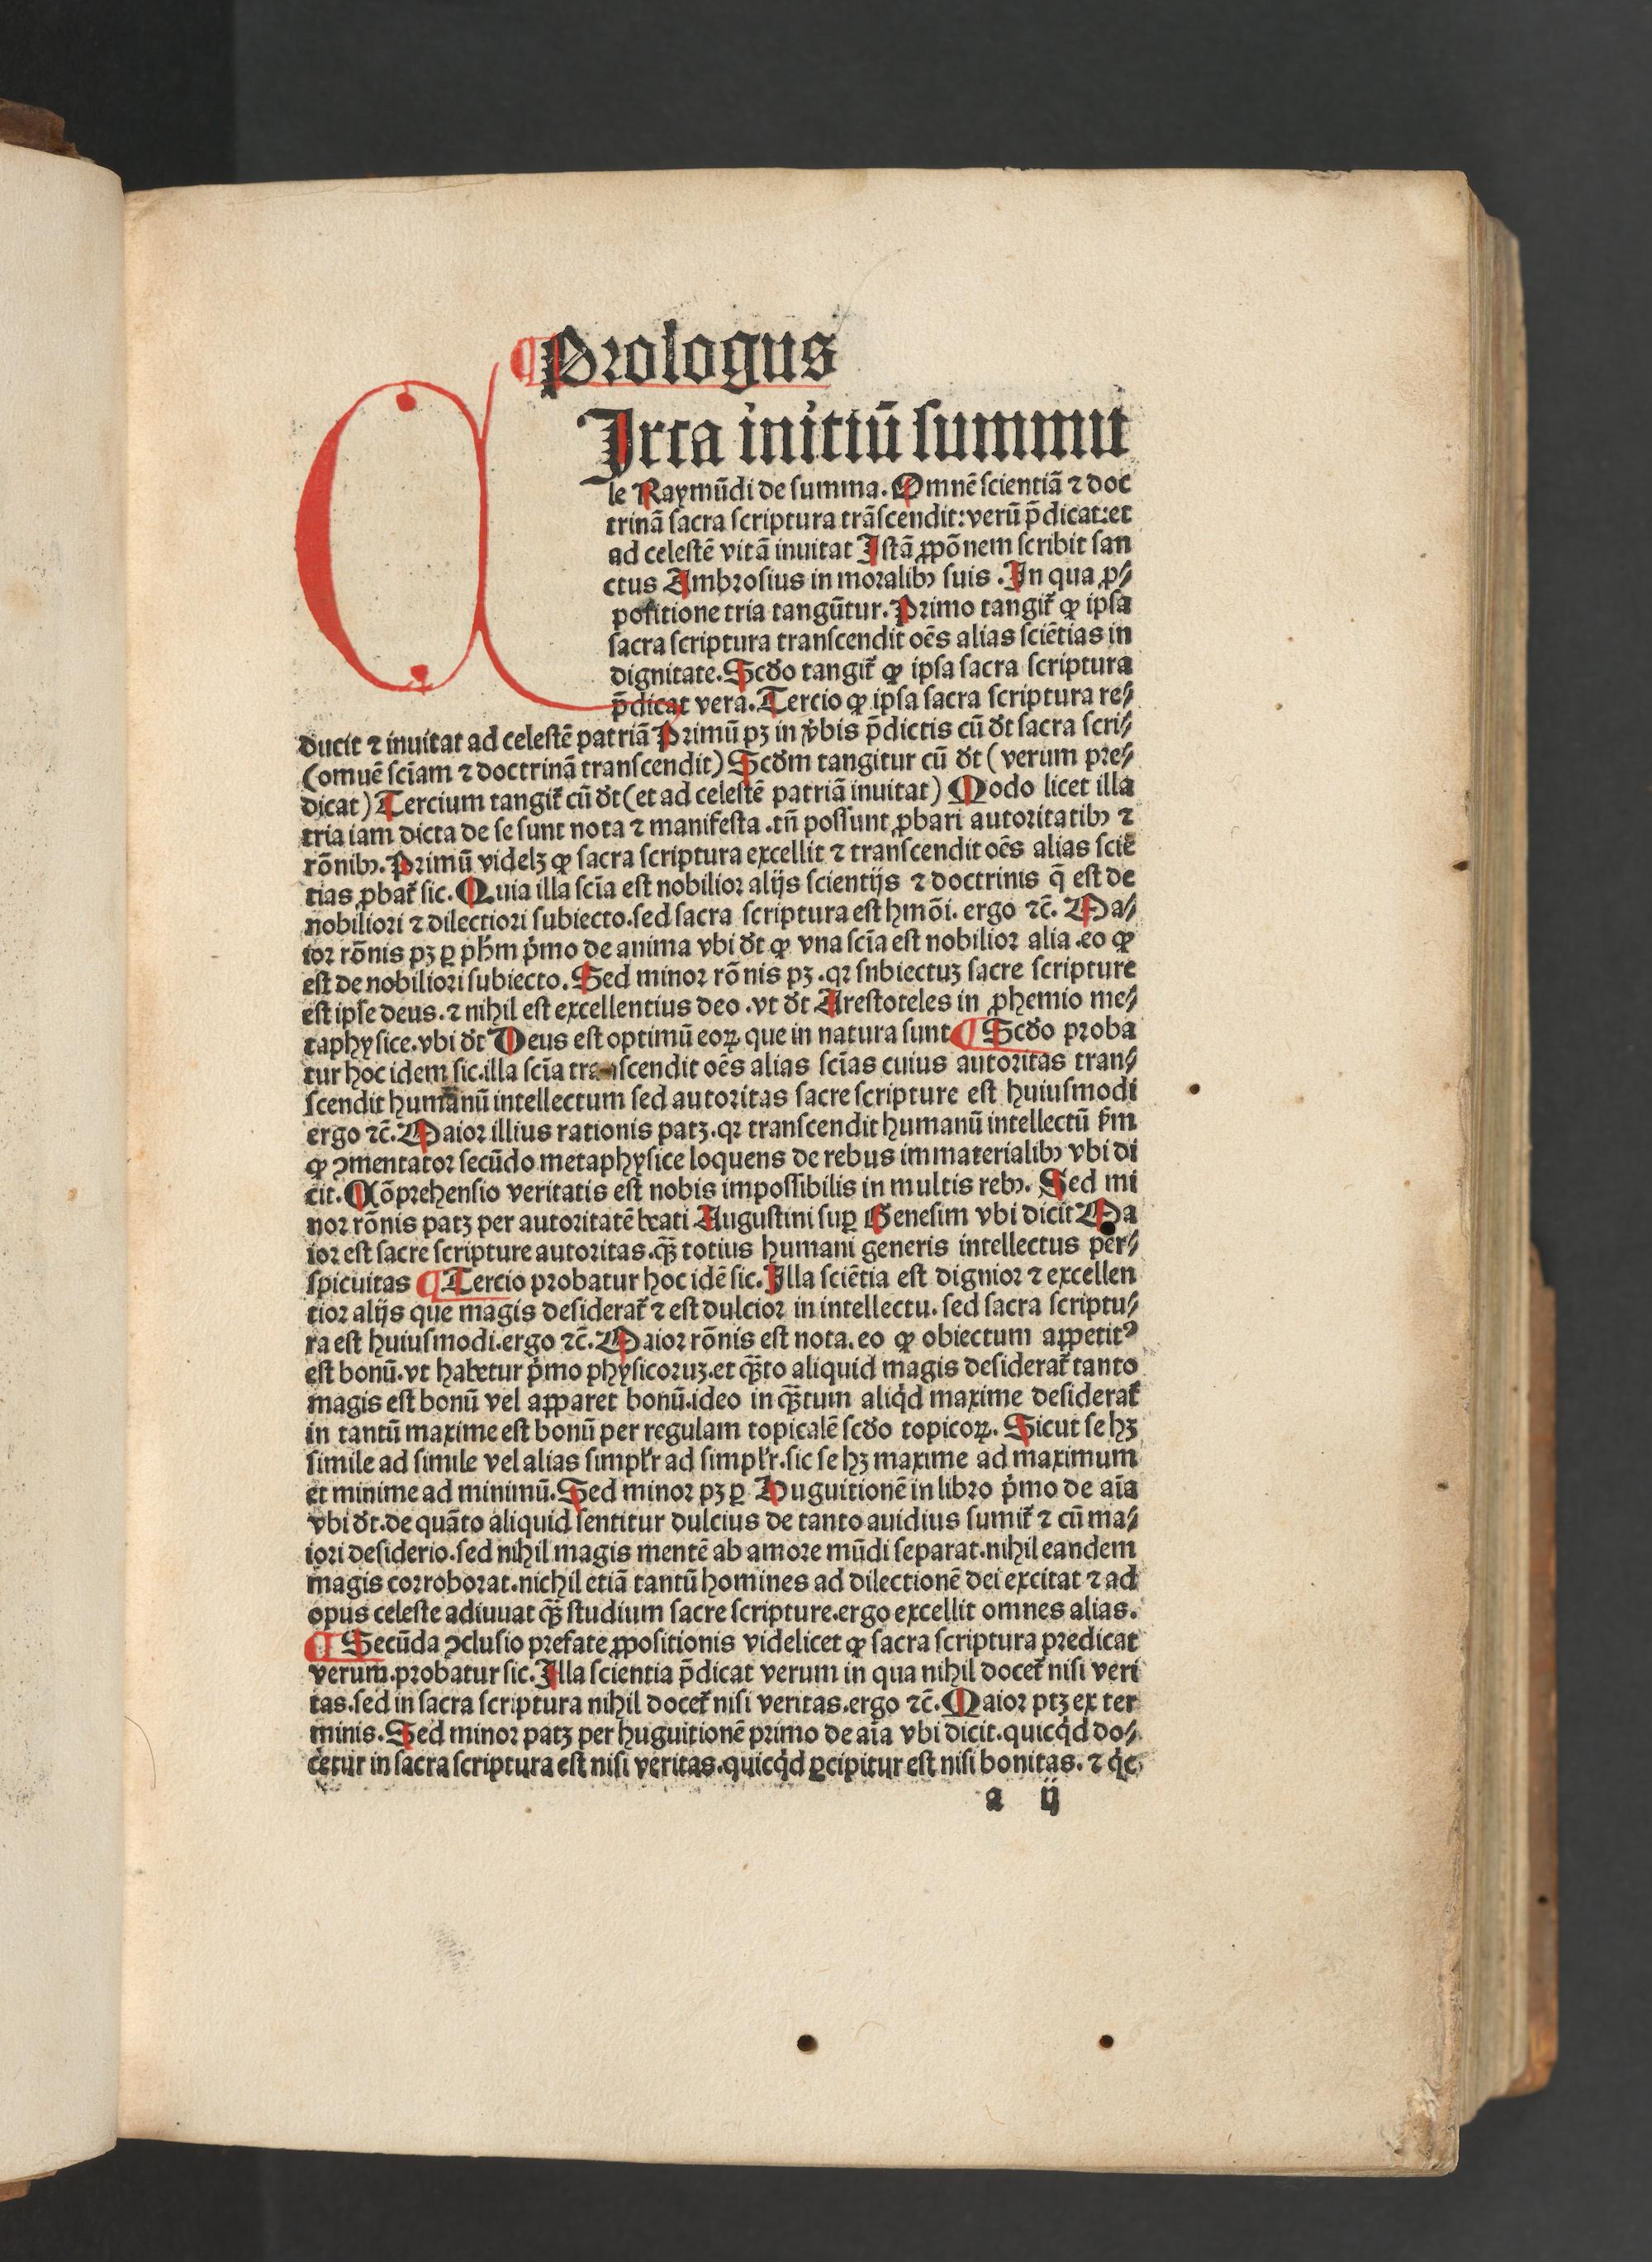 ¶ Prologus
CIrca initiū summu
le Raymūdi de summa. Omnē scientiā ⁊ doc
trinā sacra scriptura trāscendit: verū p̄dicat: et
ad celestē vitā inuitat Istā ꝓpōnem scribit san
ctus Ambrosius in moralibꝫ suis. In qua ꝓ⸗
positione tria tangūtur. Primo tangit̄ ꝙ ipsa
sacra scriptura transcendit oēs alias sciētias in
dignitate. Scďo tangit̄ ꝙ ipsa sacra scriptura
p̄dicat vera. Tercio ꝙ ipsa sacra scriptura re⸗
ducit ⁊ inuitat ad celestē patriā Primū pꝫ in v̓bis p̄dictis cū ďt sacra scri⸗
(omuē scīam ⁊ doctrinā transcendit) Scďm tangitur cū ďt (verum pre⸗
dicat) Tercium tangit̄ cū ďt (et ad celestē patriā inuitat) Modo licet illa
tria iam dicta de se sunt nota ⁊ manifesta. tn̄ possunt ꝓbari autoritatibꝫ ⁊
rōnibꝫ. Primū videlꝫ ꝙ sacra scriptura excellit ⁊ transcendit oēs alias sciē
tias ꝓbat̄ sic. Quia illa scīa est nobilior alijs scientijs ⁊ doctrinis q̄ est de
nobiliori ⁊ dilectiori subiecto. sed sacra scriptura est hmōi. ergo ⁊c̄. Ma⸗
ior rōnis pꝫ ꝑ pħm p̓mo de anima vbi ďt ꝙ vna scīa est nobilior alia. eo ꝙ
est de nobiliori subiecto. Sed minor rōnis pꝫ. qꝛ snbiectuꝫ sacre scripture
est ipse deus. ⁊ nihil est excellentius deo. vt ďt Arestoteles in ꝓhemio me⸗
taphysice. vbi ďt Deus est optimū eoꝝ que in natura sunt ¶ Scďo proba
tur hoc idem sic. illa scīa transcendit oēs alias scīas cuius autoritas tran⸗
scendit humānū intellectum sed autoritas sacre scripture est huiusmodi
ergo ⁊c̄. Maior illius rationis patꝫ. qꝛ transcendit humanū intellectū ẜm
ꝙ ↄmentator secūdo metaphysice loquens de rebus immaterialibꝫ vbi di
cit. Cōprehensio veritatis est nobis impossibilis in multis rebꝫ. Sed mi
nor rōnis patꝫ per autoritatē beati Augustini suꝑ Genesim vbi dicit Ma
ior est sacre scripture autoritas. qᷓꝫ totius humani generis intellectus per⸗
spicuitas ¶ Tercio probatur hoc idē sic. Illa sciētia est dignior ⁊ excellen
tior alijs que magis desiderat̄ ⁊ est dulcior in intellectu. sed sacra scriptu⸗
ra est huiusmodi. ergo ⁊c̄. Maior rōnis est nota. eo ꝙ obiectum appetitꝰ
est bonū. vt habetur p̓mo physicoruꝫ. et qᷓꝫto aliquid magis desiderat̄ tanto
magis est bonū vel apparet bonū. ideo in qᷓꝫtum aliq̓d maxime desiderat̄
in tantū maxime est bonū per regulam topicalē scďo topicoꝝ. Sicut se hꝫ
simile ad simile vel alias simpłr ad simpłr. sic se hꝫ maxime ad maximum
et minime ad minimū. Sed minor pꝫ ꝑ Huguitionē in libro p̓mo de aīa
vbi ďt. de quāto aliquid sentitur dulcius de tanto auidius sumit̄ ⁊ cū ma⸗
iori desiderio. sed nihil magis mentē ab amore mūdi separat. nihil eandem
magis corroborat. nichil etiā tantū homines ad dilectionē dei excitat ⁊ ad
opus celeste adiuuat qᷓꝫ studium sacre scripture. ergo excellit omnes alias.
¶ Secūda ↄclusio prefate ꝓpositionis videlicet ꝙ sacra scriptura predicat
verum. probatur sic. Illa scientia p̄dicat verum in qua nihil docet̄ nisi veri
tas. sed in sacra scriptura nihil docet̄ nisi veritas. ergo ⁊c̄. Maior ptꝫ ex ter
minis. Sed minor patꝫ per huguitionē primo de aīa vbi dicit. quicq̓d do⸗
cetur in sacra scriptura est nisi veritas. quicq̓d ꝑcipitur est nisi bonitas. ⁊ q̓c
a ij